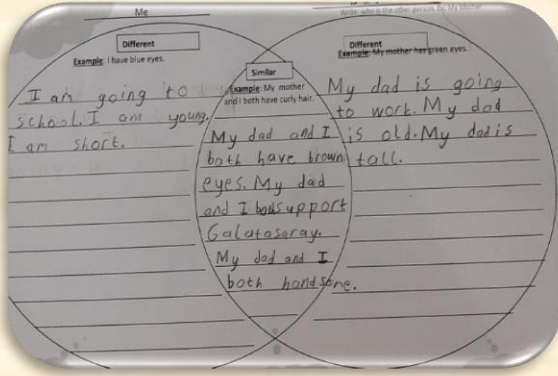 Me
Write, who is the other person. Ex: My Mother
Different
Example: I have blue eyes.
I am going to
school. I am young.
I am short.
Similar
Example: My mother
and I both have curly hair.
My dad and I
both have brown
eyes. My dad
and I both support
Galatasaray.
My dad and I
both handsome.
Different
Example: My mother has green eyes.
My dad is going
to work. My dad
is old. My dad is
tall.